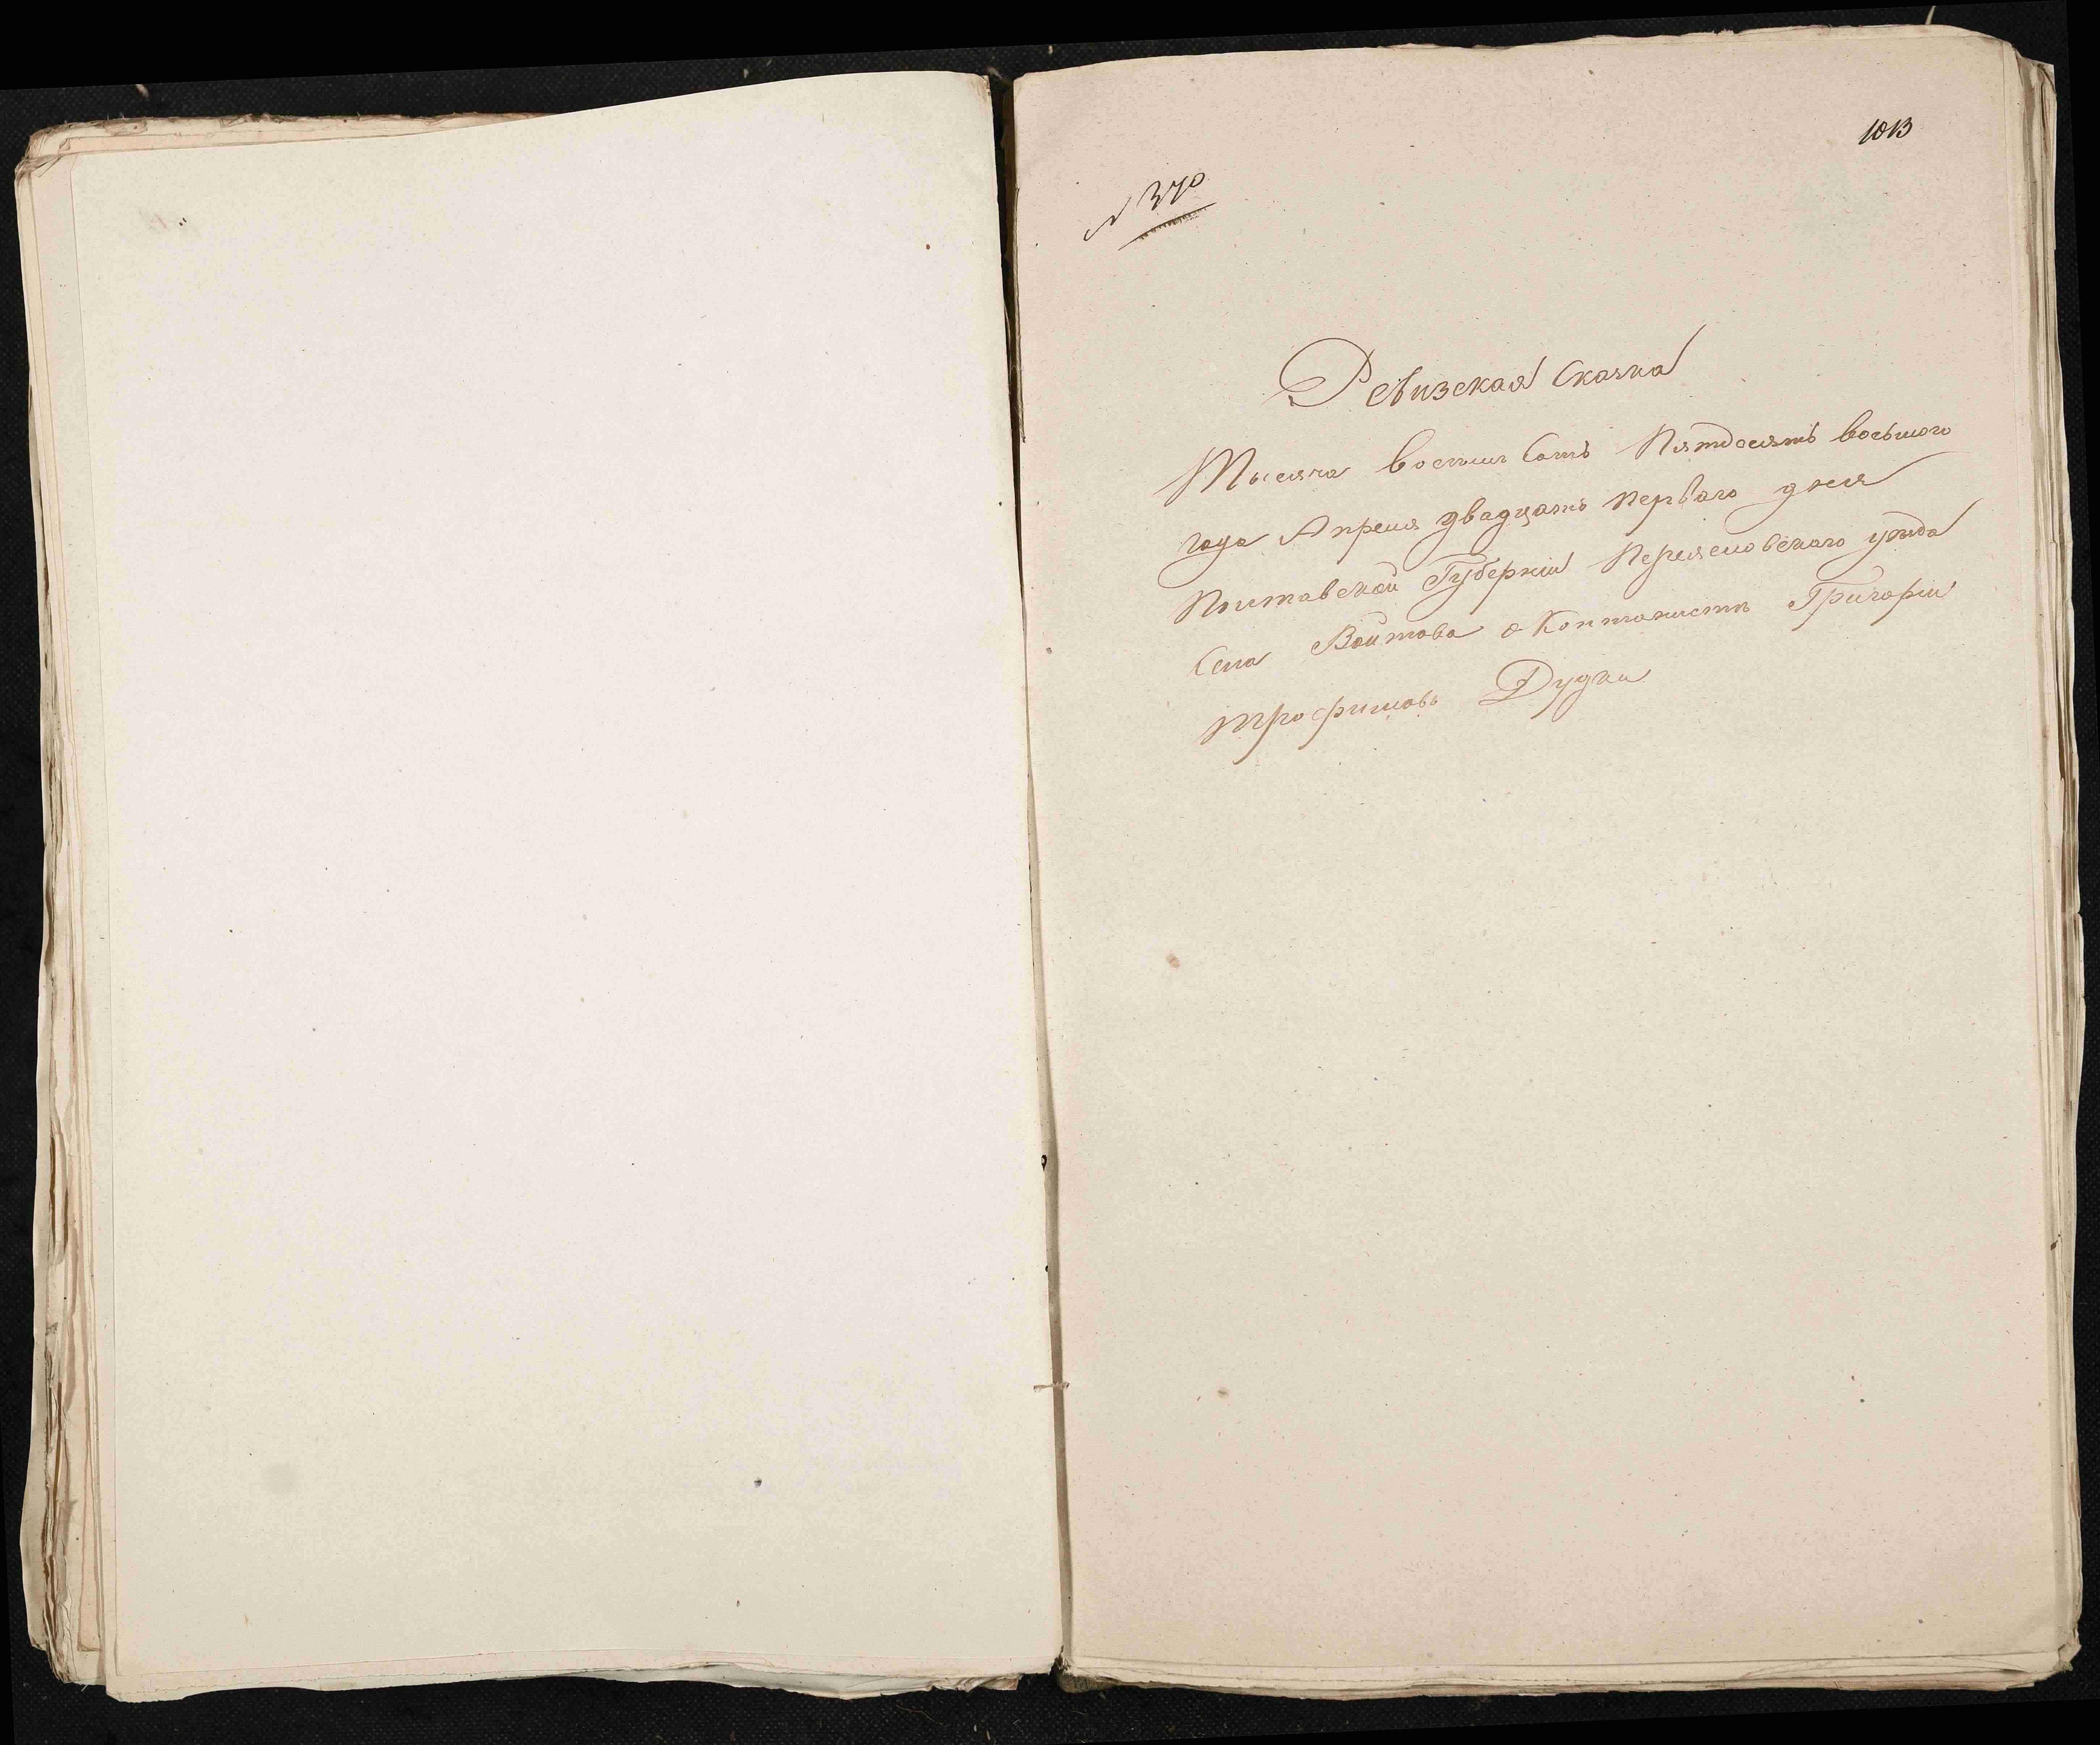 1013
N 370
Ревизская Сказка
Тысяча восемь Сотъ Пятдесятъ восьмого
года Апреля двадцать первого дня
Полтавской Губерніи Переяславского уезда
Села Войтова о Коптонистъ Григорій
Трофимовъ Дудки